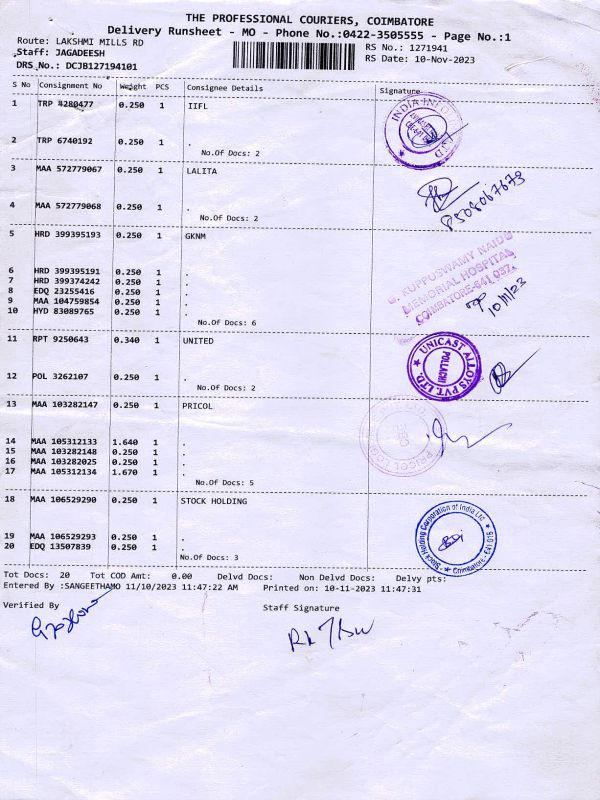 THE PROFESSIONAL COURIERS, COIMBATORE
Delivery Runsheet - MO - Phone No.:0422-3505555 - Page No.:1
Route: LAKSHMI MILLS RD
RS No.: 1271941
Staff: JAGADEESH
RS Date: 10-Nov-2023
DRS No.: DCJB127194101
S No Consignment No Weight PCS Consignee Details Signature
1 TRP 4280477 0.250 1 IIFL
2 TRP 6740192 0.250 1 .
No.Of Docs: 2
3 MAA 572779067 0.250 1 LALITA
8508067673
4 MAA 572779068 0.250 1 .
No.Of Docs: 2
5 HRD 399395193 0.250 1 GKNM
G. KUPPUSWAMY NAIDU
MEMORIAL HOSPITAL
COIMBATORE-641 037.
10/11/23
6 HRD 399395191 0.250 1 .
7 HRD 399374242 0.250 1 .
8 EDQ 23255416 0.250 1 .
9 MAA 104759854 0.250 1 .
10 HYD 83089765 0.250 1 .
No.Of Docs: 6
11 RPT 9250643 0.340 1 UNITED
UNICAST ALLOYS PVT. LTD.
POLLACHI
12 POL 3262107 0.250 1 .
No.Of Docs: 2
13 MAA 103282147 0.250 1 PRICOL
PRICOL
14 MAA 105312133 1.640 1 .
15 MAA 103282148 0.250 1 .
16 MAA 103282025 0.250 1 .
17 MAA 105312134 1.670 1 .
No.Of Docs: 5
18 MAA 106529290 0.250 1 STOCK HOLDING
Stock Holding Corporation of India Ltd.
Coimbatore-
19 MAA 106529293 0.250 1 .
20 EDQ 13507839 0.250 1 .
No.Of Docs: 3
Tot Docs: 20 Tot COD Amt: 0.00 Delvd Docs: Non Delvd Docs: Delvy pts:
Entered By :SANGEETHAMO 11/10/2023 11:47:22 AM Printed on: 10-11-2023 11:47:31
Verified By
Staff Signature